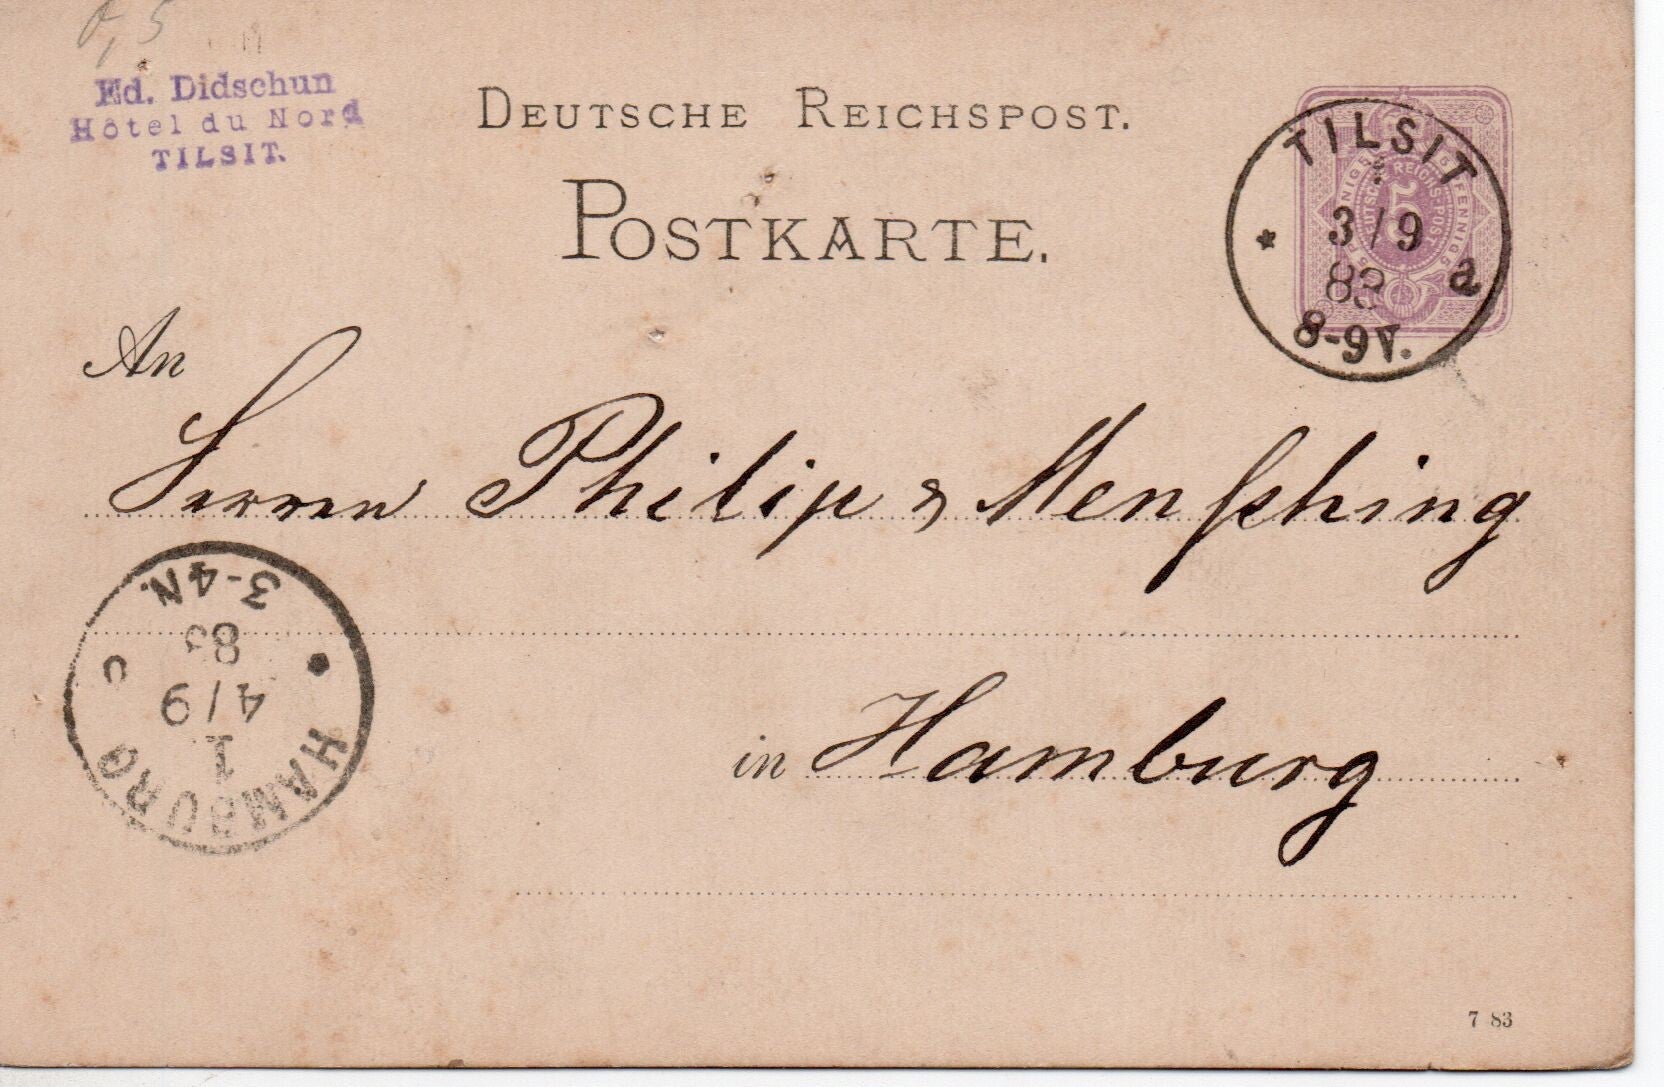 0,5
Ed. Didschun
Hôtel du Nord
TILSIT.
DEUTSCHE REICHSPOST.
POSTKARTE.
TILSIT
3/9
83
a
8-9V.
5
DEUTSCHE REICHS-POST
An
Herren Philip & Menſhing
in Hamburg
HAMBURG
1
4/9
83
c
3-4N.
7 83